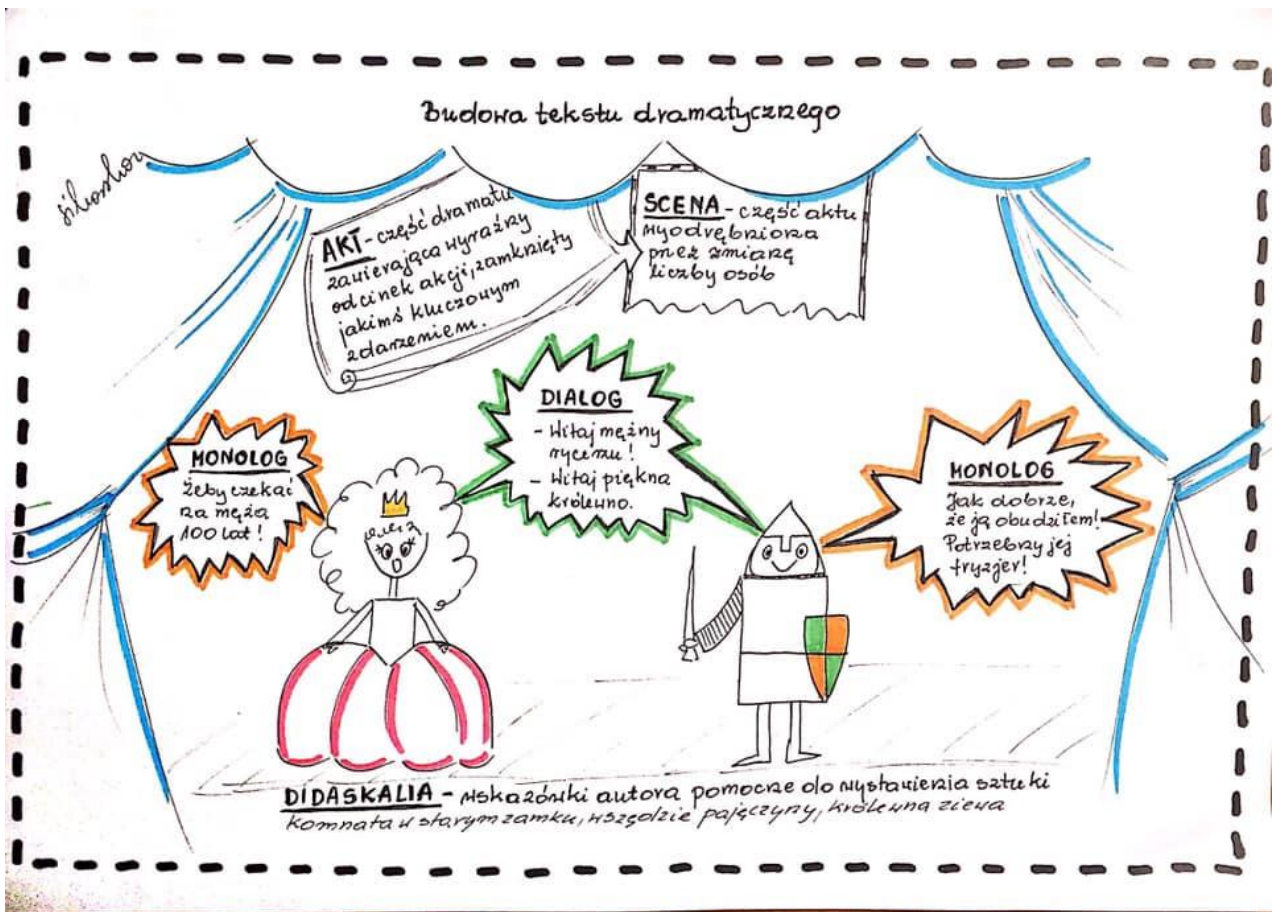 Budowa tekstu dramatycznego
AKT - część dramatu
zawierająca wyraźny
odcinek akcji, zamknięty
jakimś kluczowym
zdarzeniem.
SCENA - część aktu
wyodrębniona
przez zmianę
liczby osób
MONOLOG
Żeby czekać
na męża
100 lat!
DIALOG
- Witaj mężny
rycerzu!
- Witaj piękna
królewno.
MONOLOG
Jak dobrze,
że ją obudziłem!
Potrzebny jej
fryzjer!
DIDASKALIA - wskazówki autora pomocne do wystawienia sztuki
komnata w starym zamku, wszędzie pajęczyny, królewna ziewa